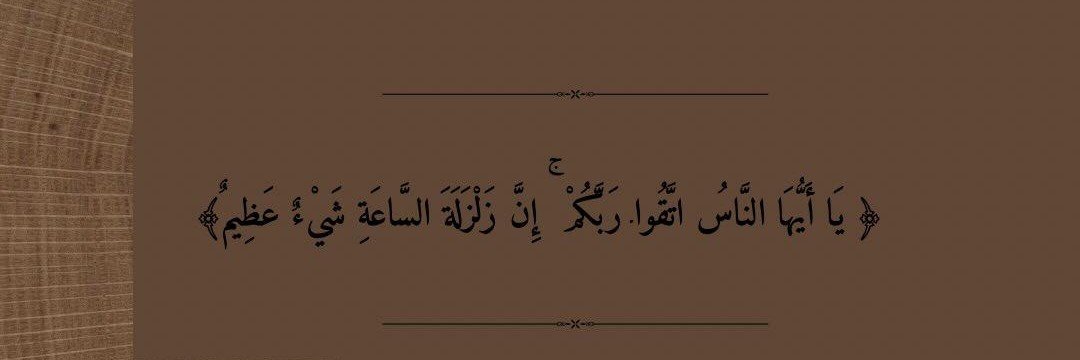 ﴿ يَا أَيُّهَا النَّاسُ اتَّقُوا رَبَّكُمْ ۚ إِنَّ زَلْزَلَةَ السَّاعَةِ شَيْءٌ عَظِيمٌ﴾